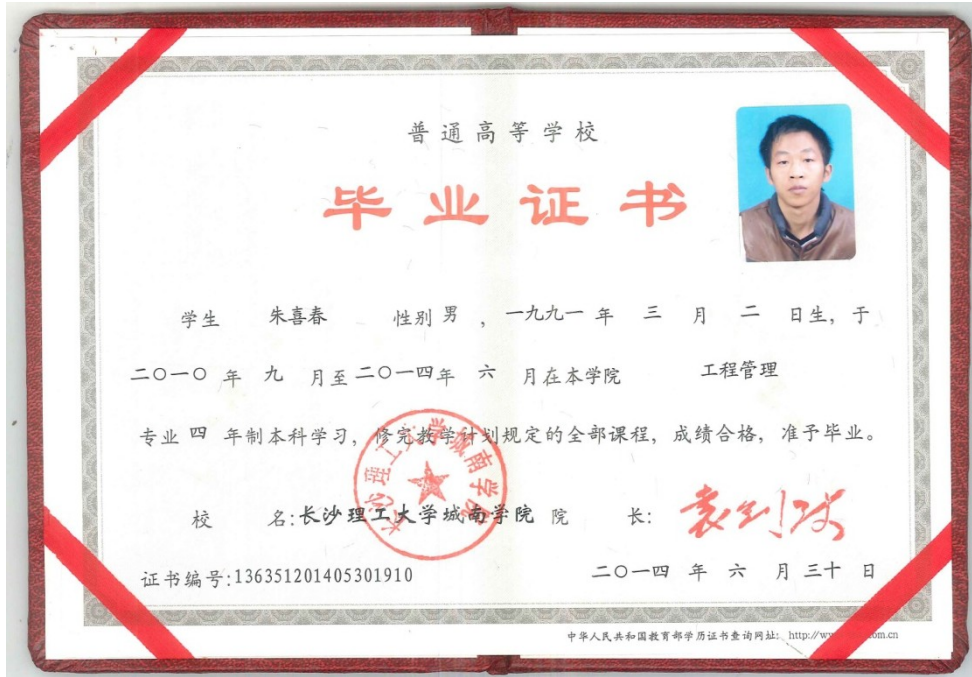 普通高等学校
毕业证书
学生 朱喜春 性别 男 , 一九九一 年 三 月 二 日生, 于
二〇一〇 年 九 月至 二〇一四年 六 月在本学院 工程管理
专业 四 年制本科学习, 修完教学计划规定的全部课程, 成绩合格, 准予毕业。
校 名: 长沙理工大学城南学院 院 长:
长沙理工大学城南学院
证书编号:136351201405301910 二〇一四 年 六 月 三十 日
中华人民共和国教育部学历证书查询网址: http://